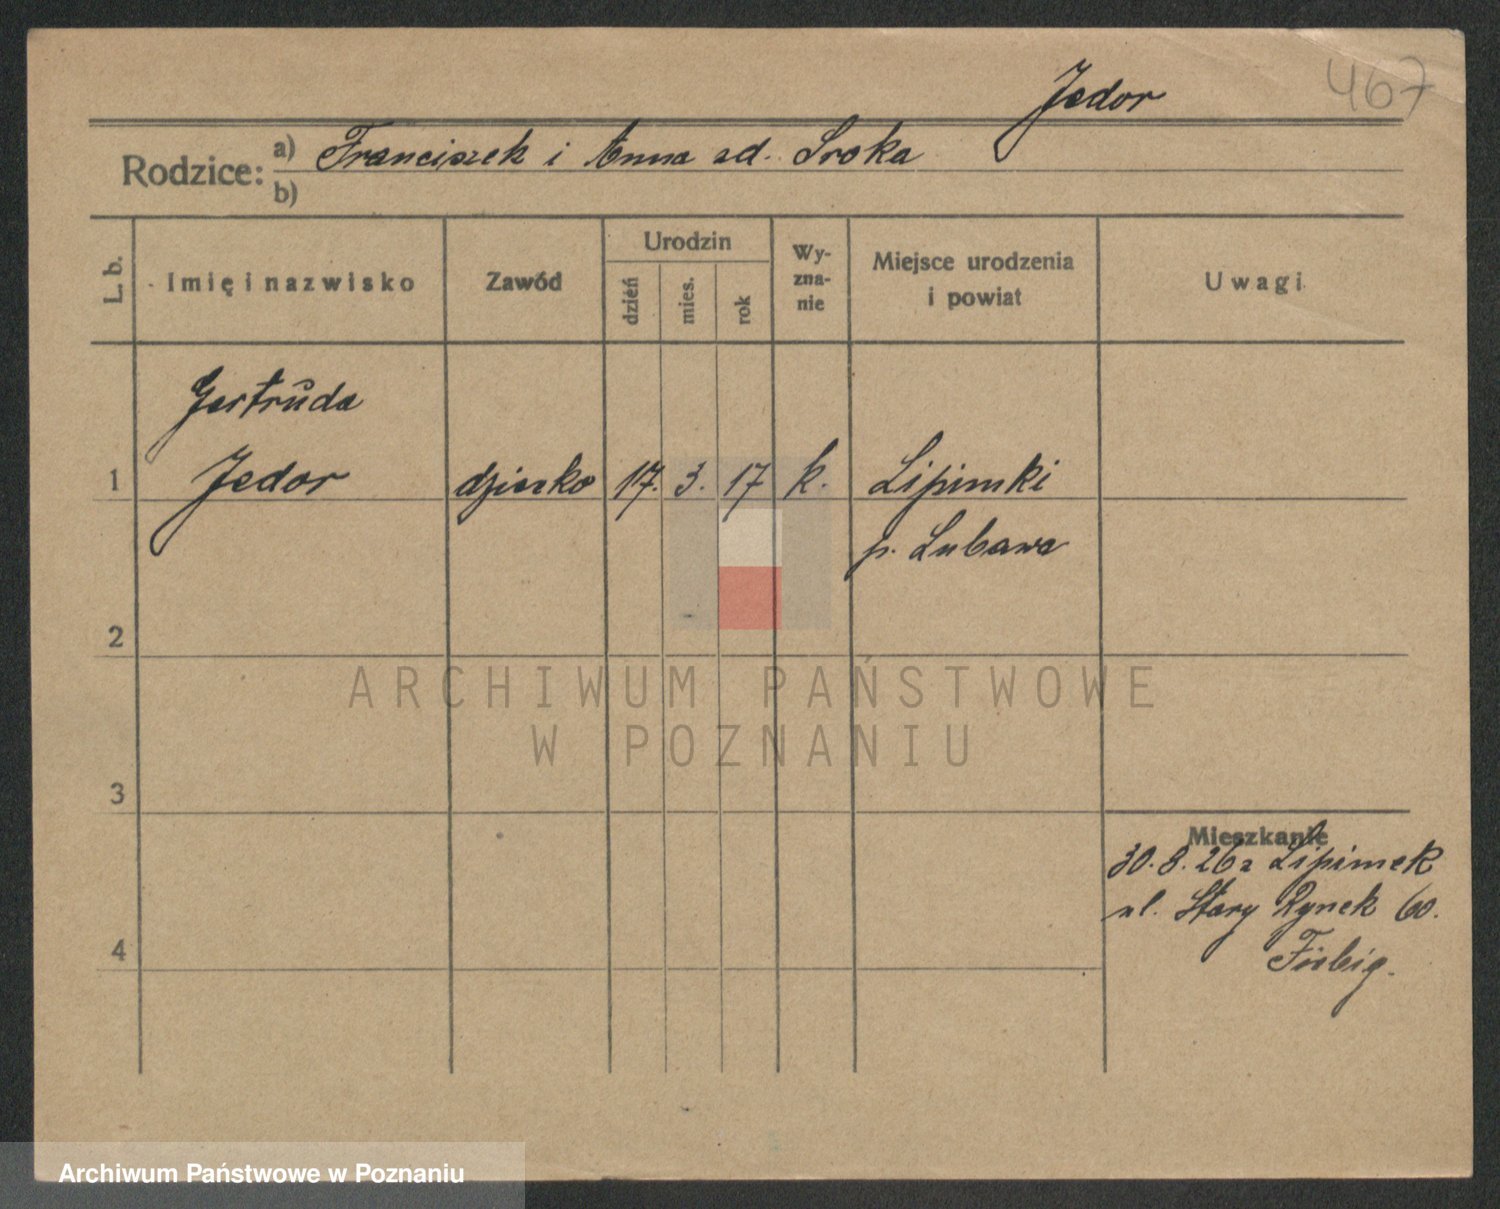 467
Jedor
Rodzice: a) Franciszek i Anna zd. Sroka
b)
L. b. Imię i nazwisko Zawód Urodzin dzień mies. rok Wyznanie Miejsce urodzenia i powiat Uwagi
Gertruda
1 Jedor dziecko 17. 3. 17 k. Lipinki
p. Lubawa
2
3
Mieszkanie
30. 8. 26 z Lipinek
ul. Stary Rynek 60.
4 Fiebig.
ARCHIWUM PAŃSTWOWE
W POZNANIU
Archiwum Państwowe w Poznaniu